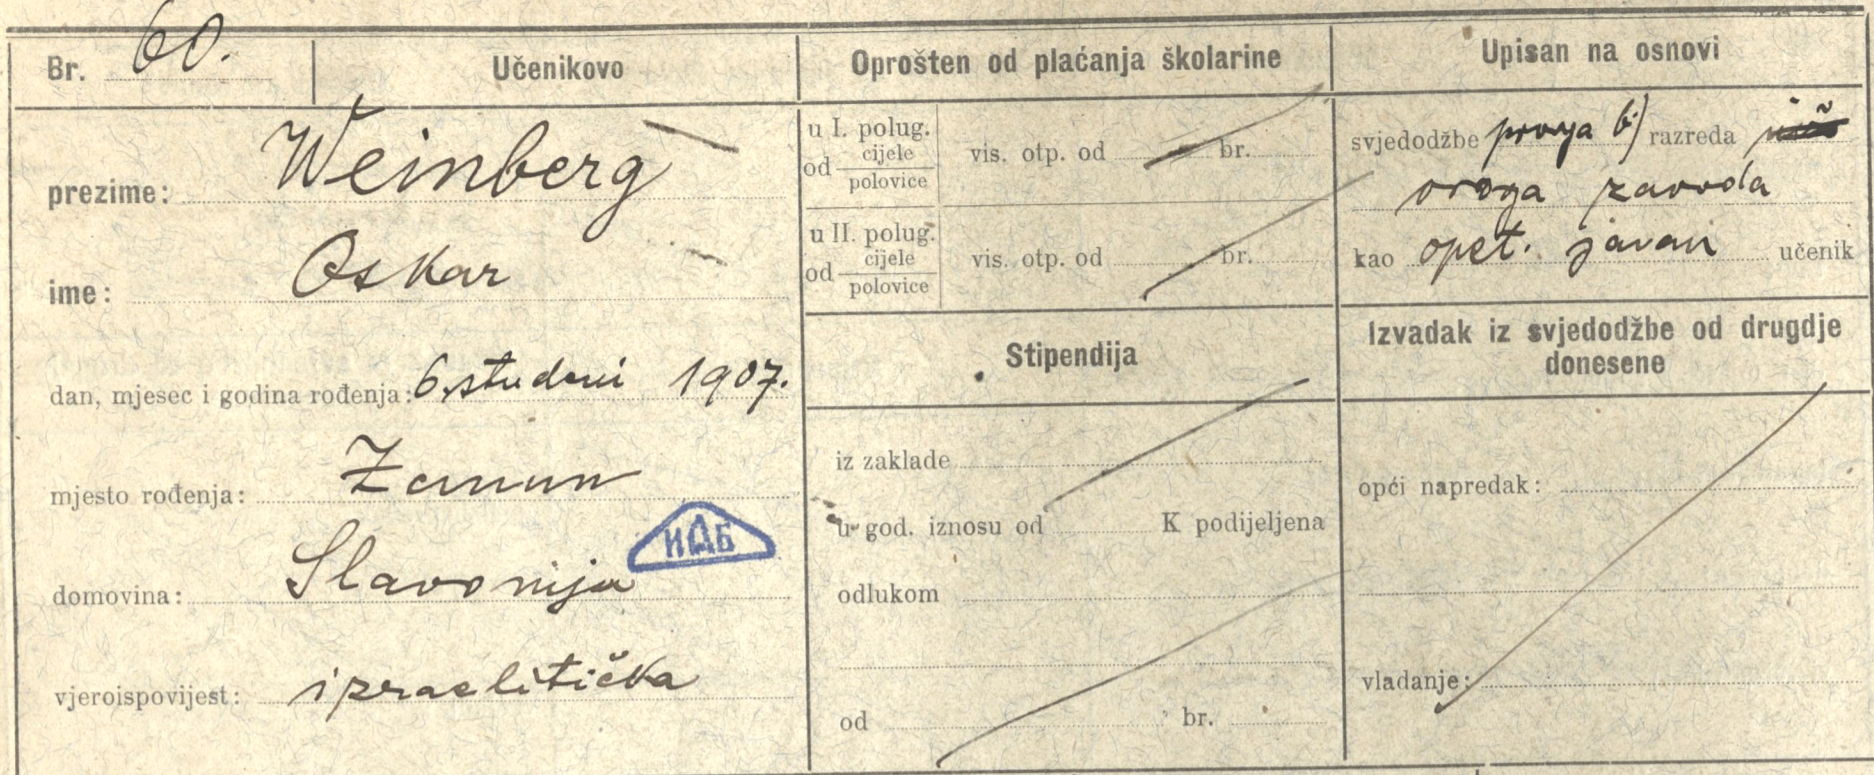 Br. 60.
Učenikovo
prezime: Weinberg
ime: Oskar
dan, mjesec i godina rođenja: 6. studeni 1907.
mjesto rođenja: Zemun
domovina: Slavonija
ИАБ
vjeroispovijest: izraelitička
Oprošten od plaćanja školarine
u I. polug.
od cijele
polovice
vis. otp. od br.
u II. polug.
od cijele
polovice
vis. otp. od br.
Stipendija
iz zaklade
u god. iznosu od K podijeljena
odlukom
od br.
Upisan na osnovi
svjedodžbe prvga b) razreda
ovoga zavoda
kao opet. javan učenik
Izvadak iz svjedodžbe od drugdje
donesene
opći napredak:
vladanje: